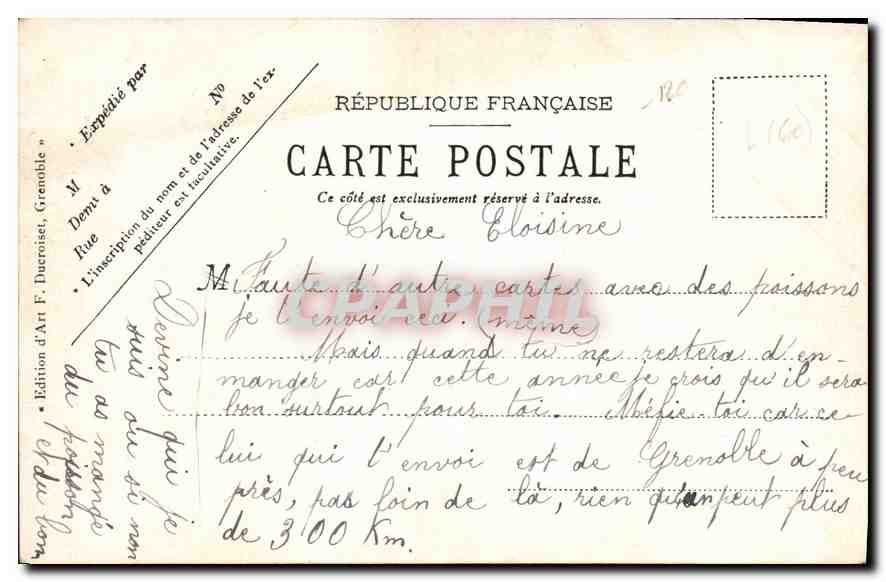 RÉPUBLIQUE FRANÇAISE
CARTE POSTALE
Ce côté est exclusivement réservé à l'adresse.
Chère Eloisine
M. Faute d'autre cartes avec des poissons
je t'envoi ceci. (même)
Mais quand tu ne restera d'en-
manger car cette année je crois qu'il sera
bon surtout pour toi. Méfie-toi car ce-
lui qui t'envoi est de Grenoble à peu
près, pas loin de là, rien qu'un peut plus
de 300 Km.
Devine qui je
suis ou si non
tu as mangé
du poisson
et du bon
Expédié par
M N°
Demt à
Rue
• L'inscription du nom et de l'adresse de l'ex-
péditeur est facultative.
« Edition d'Art F. Ducroiset, Grenoble »
120
L (60)
CPAPHIL